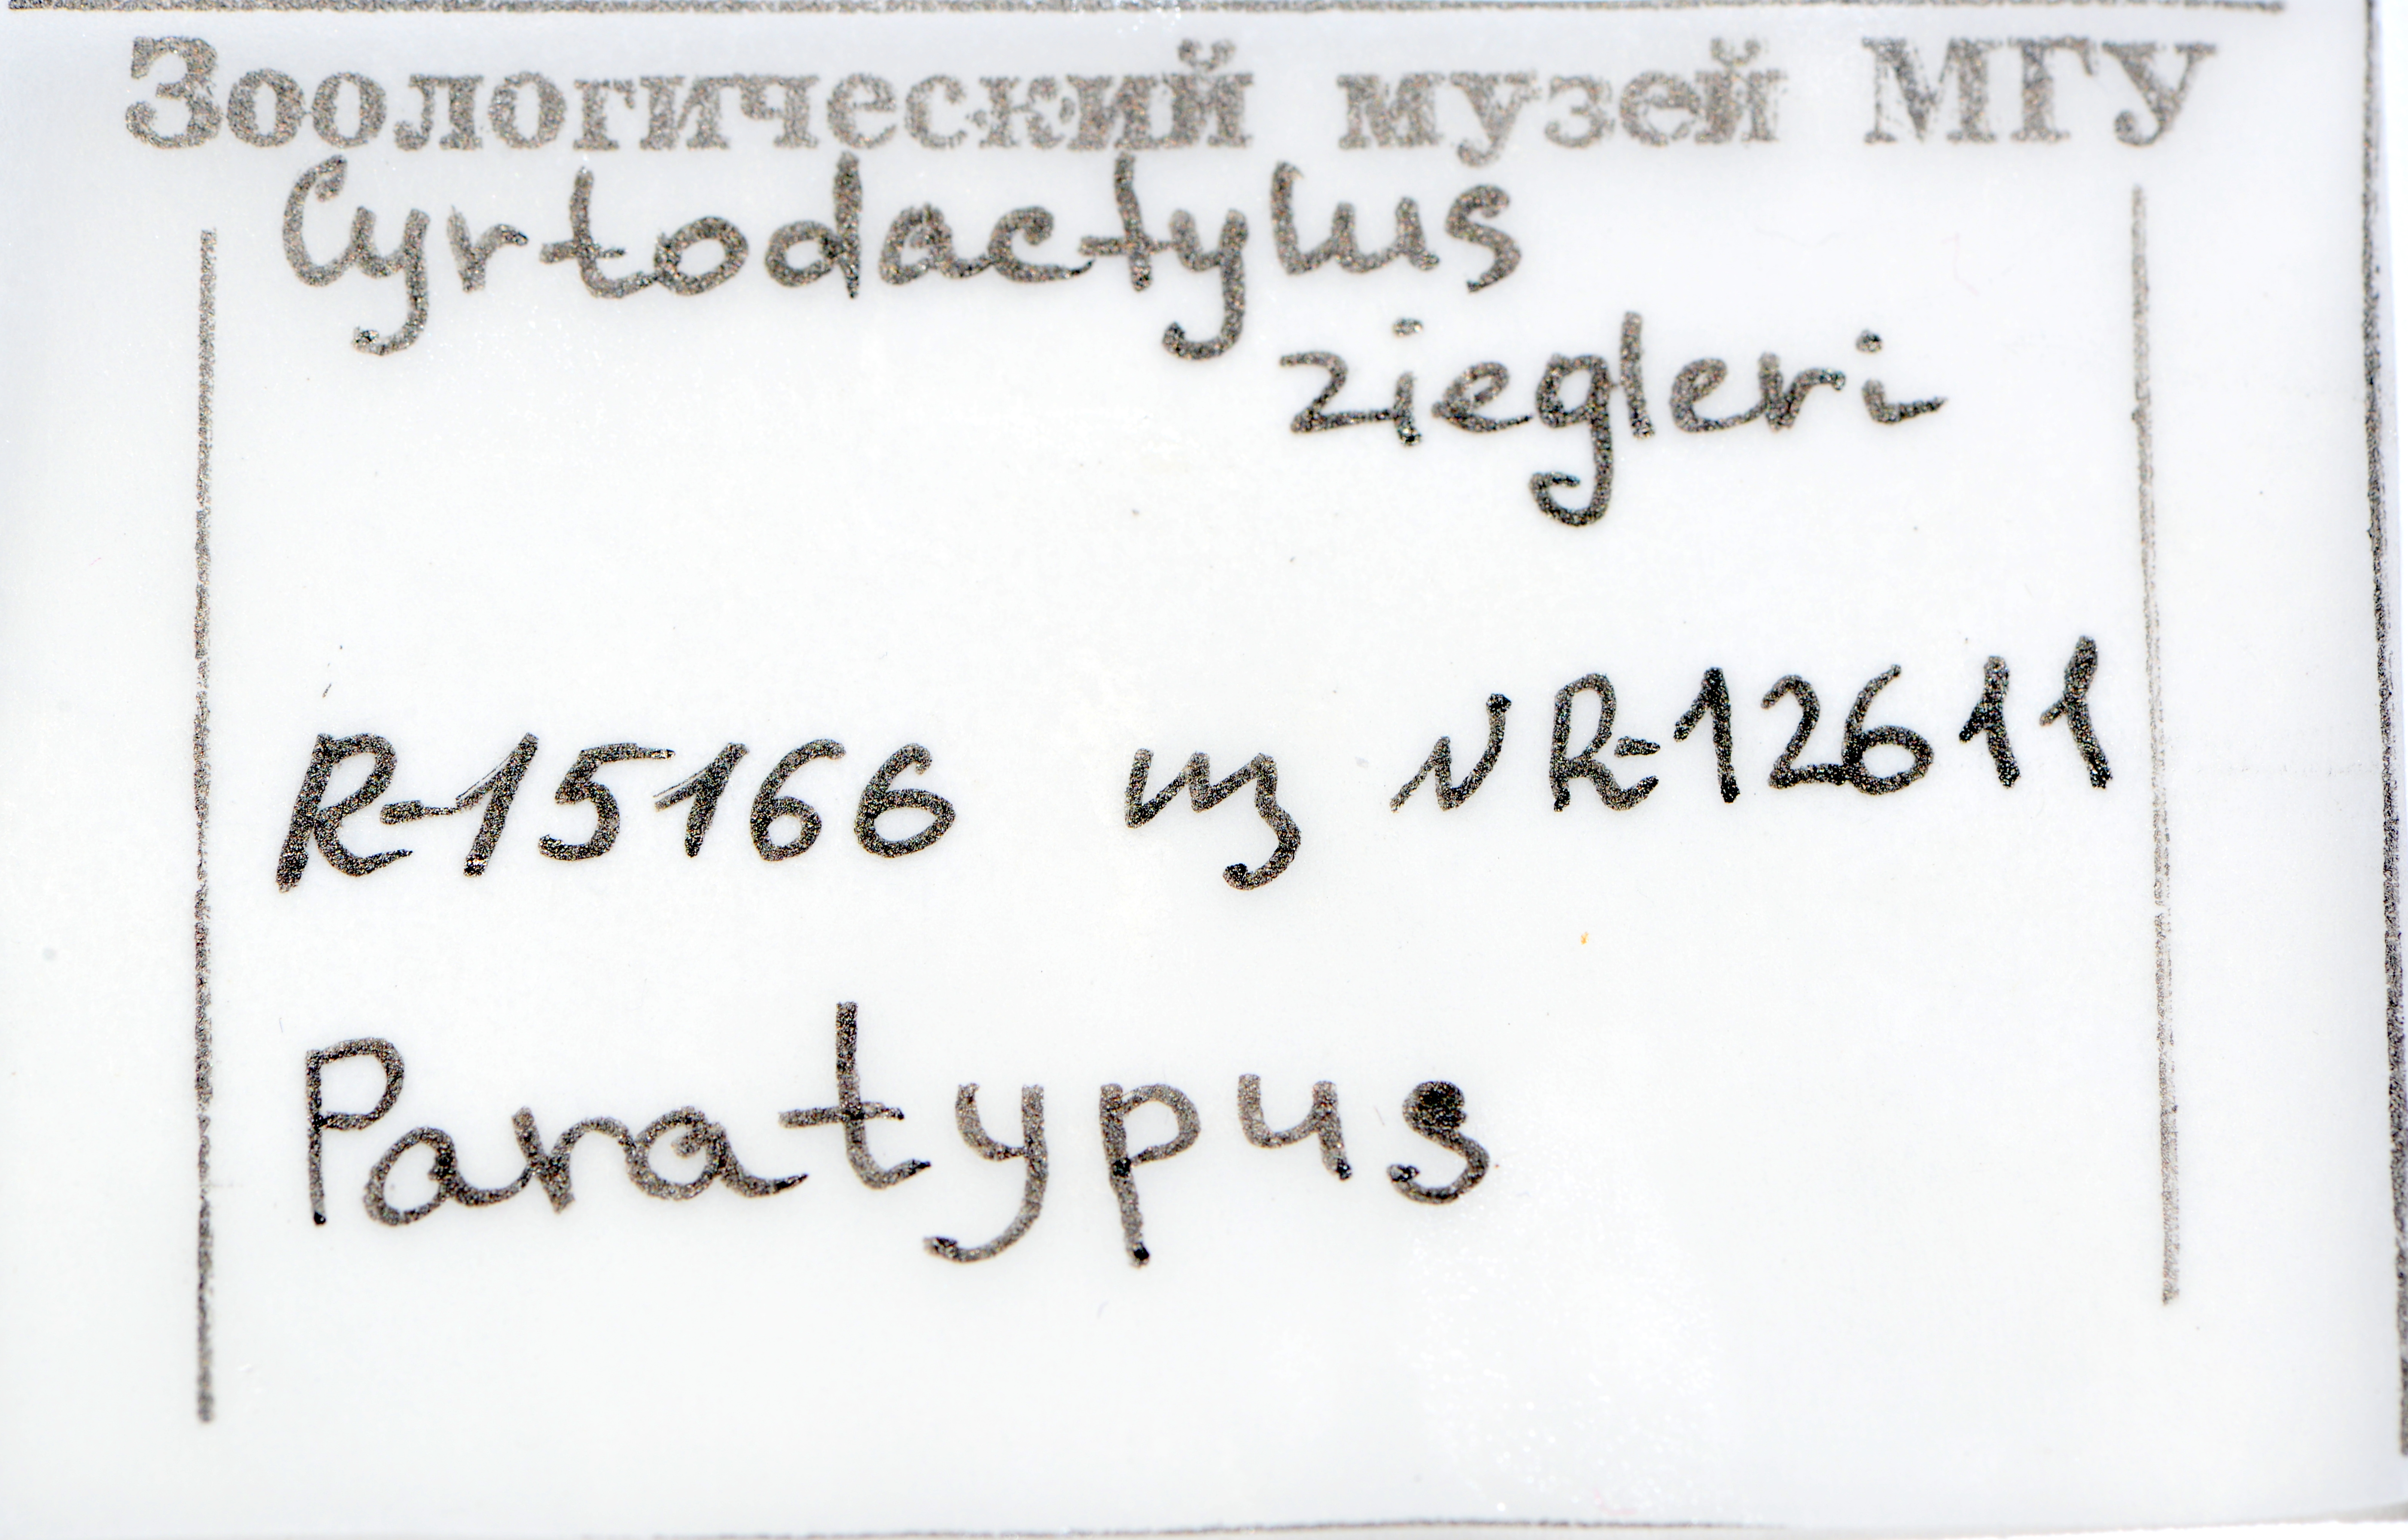 Зоологический музей МГУ
Cyrtodactylus
ziegleri
R-15166 из NR-12611
Paratypus